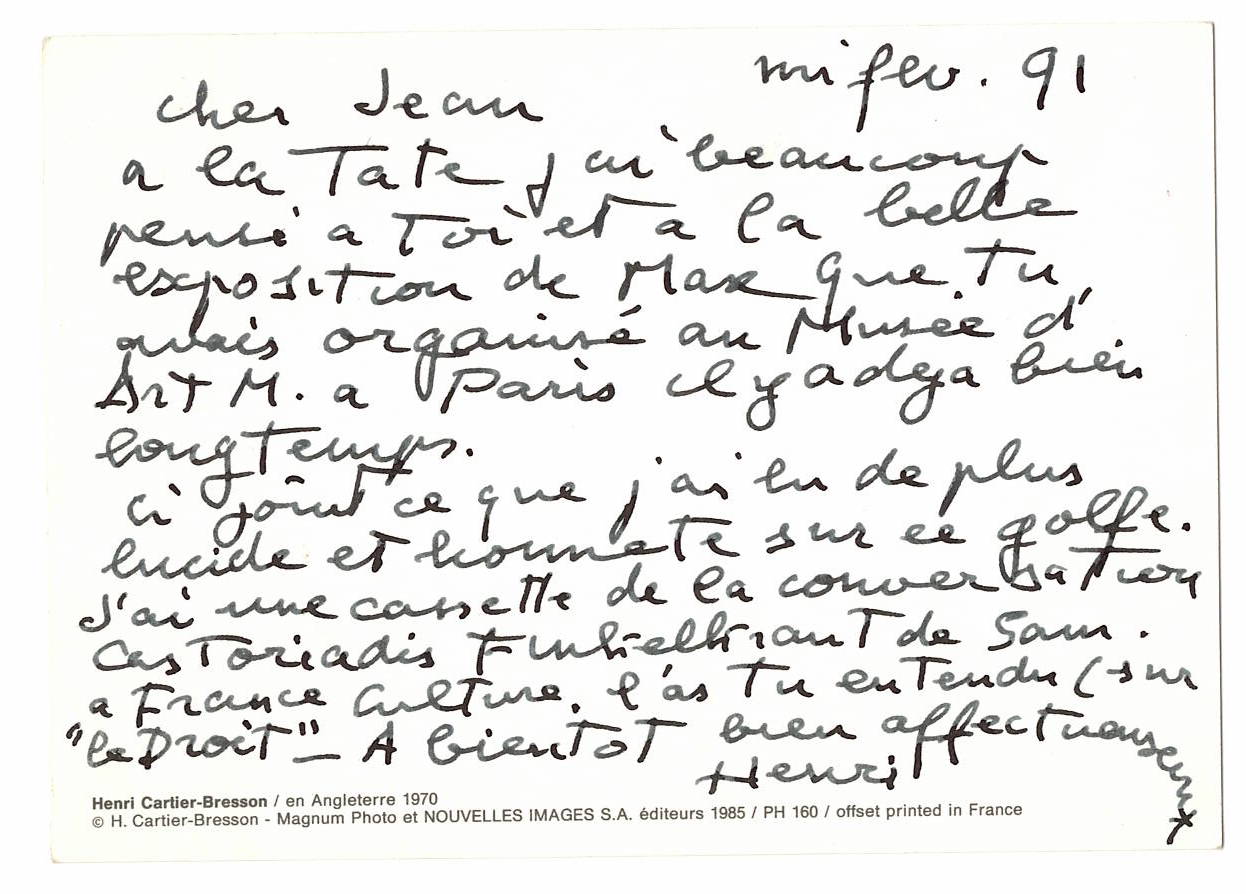 mi fev. 91
cher Jean
a la Tate j'ai beaucoup
pensé a toi et a la belle
exposition de Max que tu
avais organisé au Musée d'
Art M. a Paris il y a deja bien
longtemps.
ci joint ce que j'ai lu de plus
lucide et honnete sur ce golfe.
J'ai une cassette de la conversation
Castoriadis Finkielkraut de Sam.
a France Culture. l'as tu entendu (sur
"le Droit" _ A bientot bien affectueusement
Henri
Henri Cartier-Bresson / en Angleterre 1970
© H. Cartier-Bresson - Magnum Photo et NOUVELLES IMAGES S.A. éditeurs 1985 / PH 160 / offset printed in France